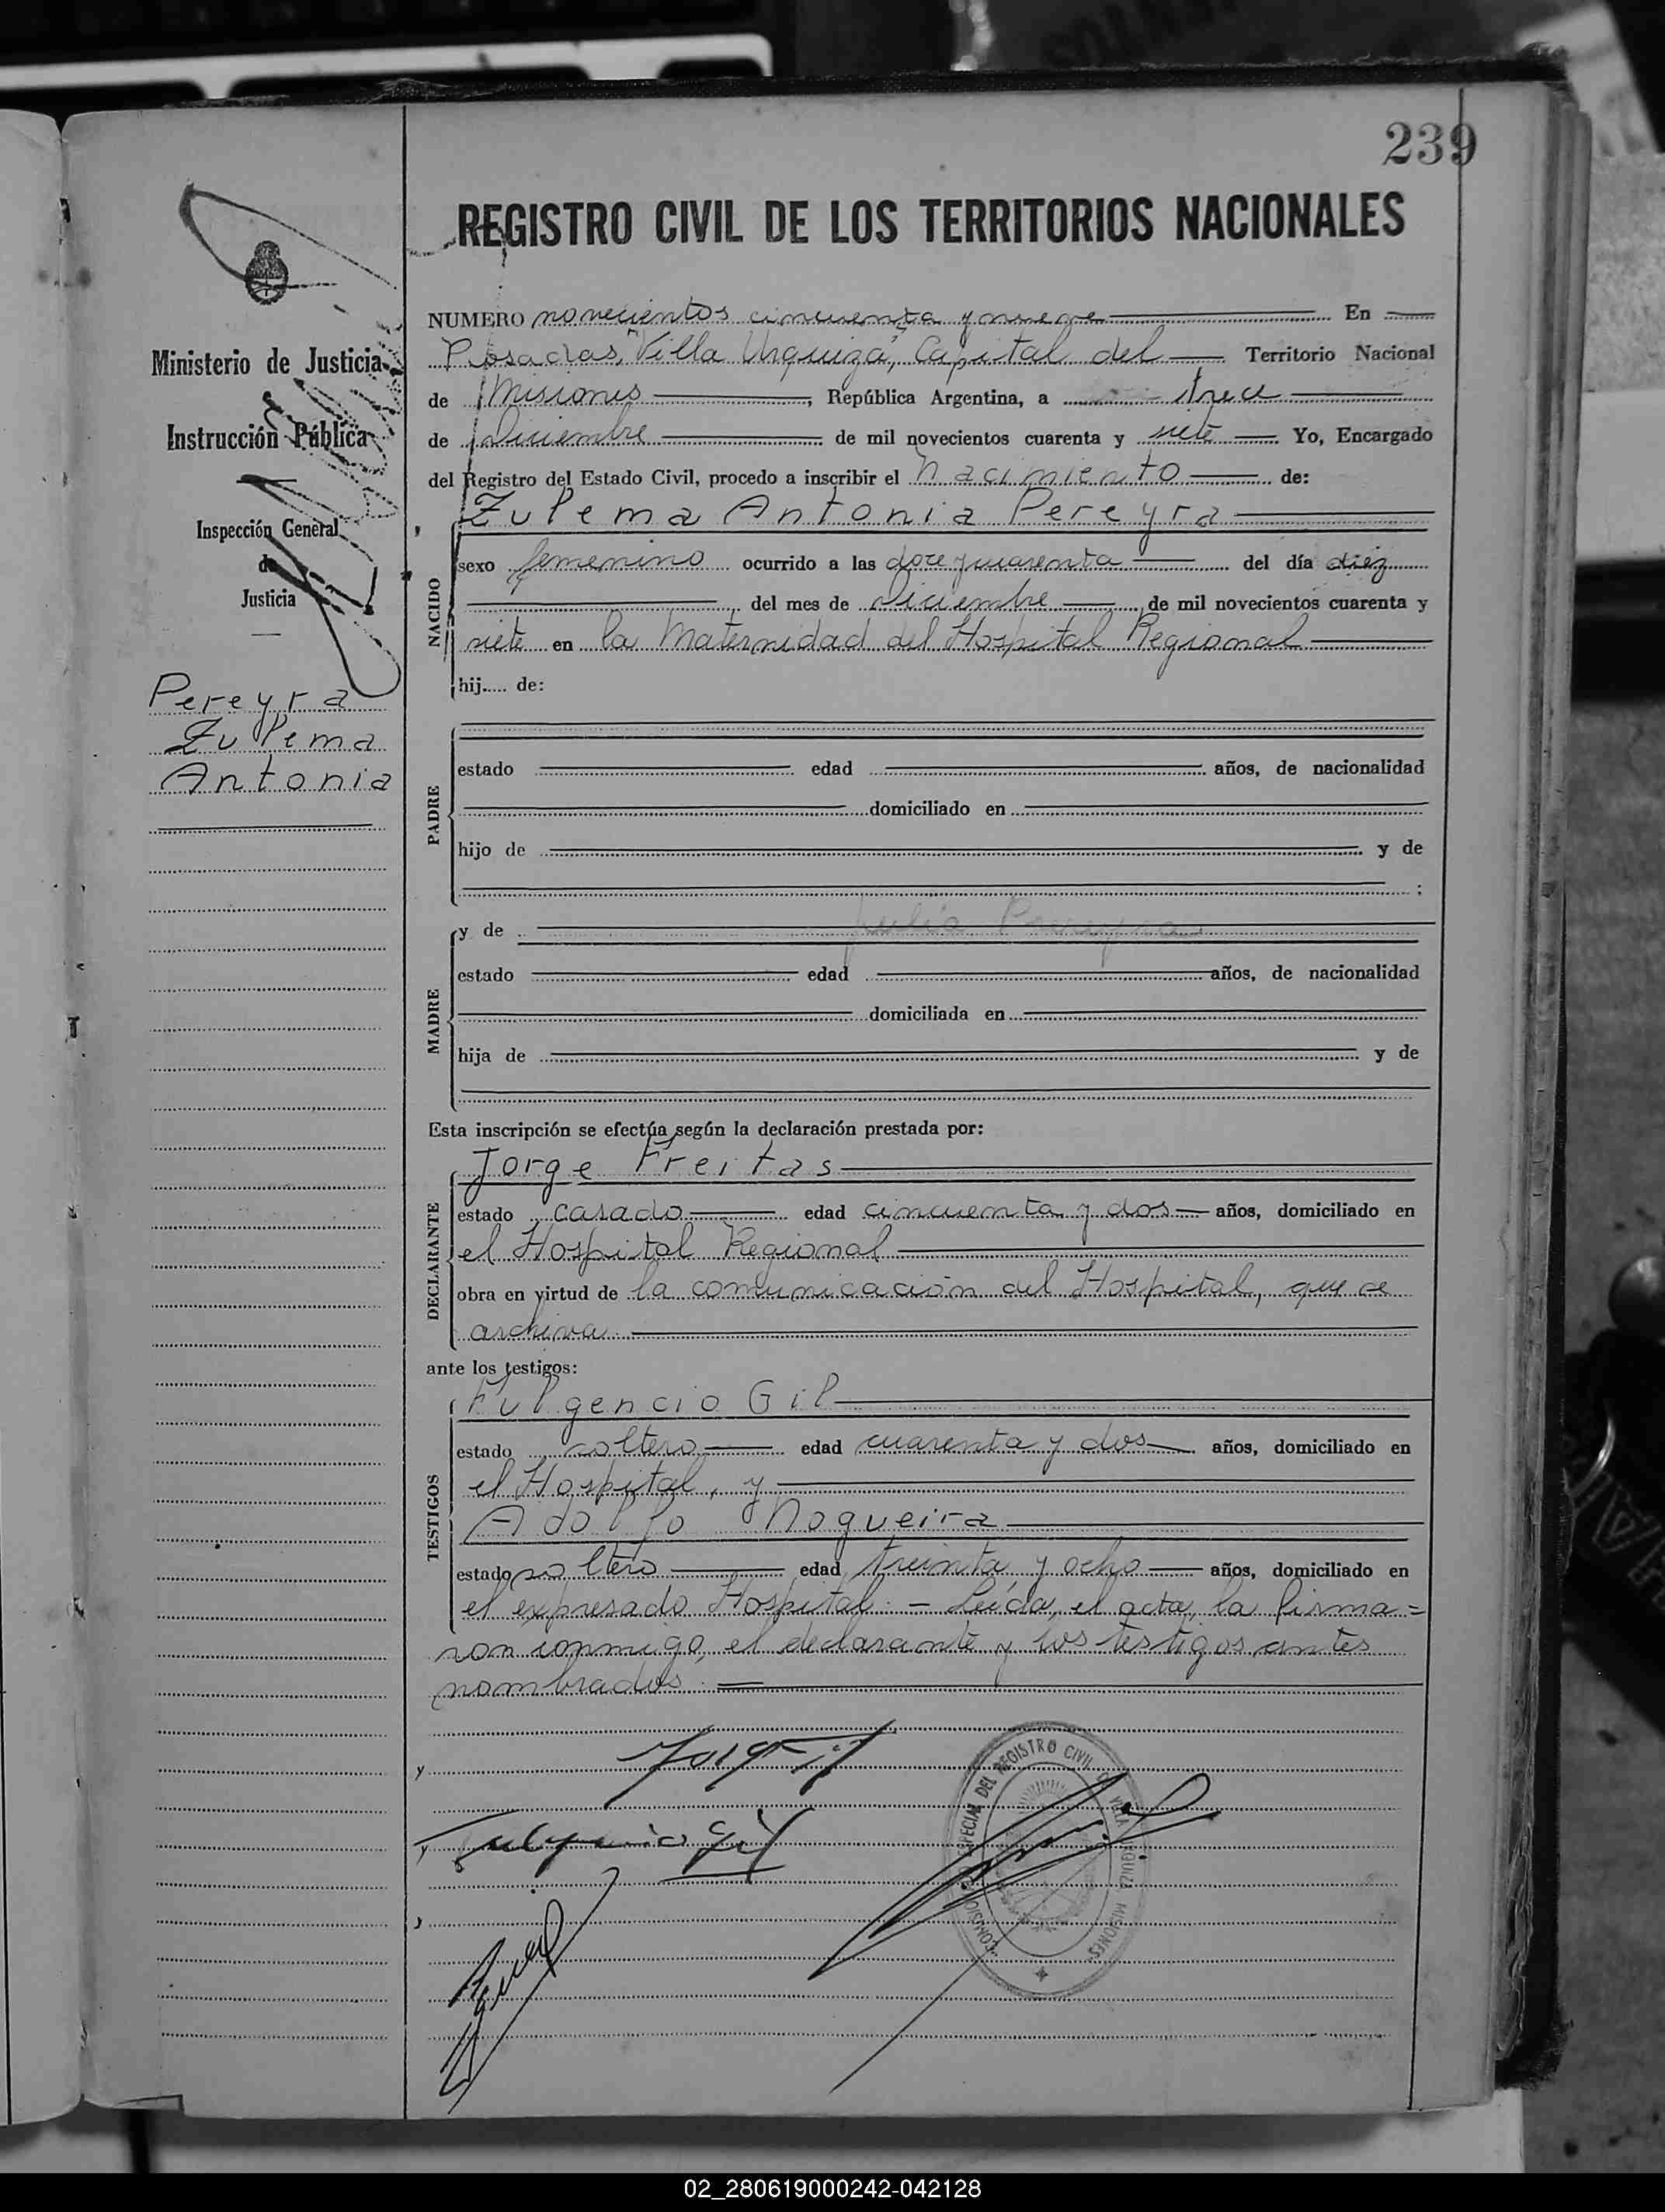 239
REGISTRO CIVIL DE LOS TERRITORIOS NACIONALES
Ministerio de Justicia
Instrucción Pública
Inspección General
de
Justicia
Pereyra
Zulema
Antonia
NUMERO novecientos cincuenta y nueve En
Posadas, "Villa Urquiza", Capital del Territorio Nacional
de Misiones, República Argentina, a trece
de Diciembre de mil novecientos cuarenta y siete Yo, Encargado
del Registro del Estado Civil, procedo a inscribir el Nacimiento de:
Zulema Antonia Pereyra
NACIDO
sexo femenino ocurrido a las doce y cuarenta del día diez
del mes de Diciembre, de mil novecientos cuarenta y
siete en la Maternidad del Hospital Regional
hij..... de:
PADRE
estado edad años, de nacionalidad
domiciliado en
hijo de y de
;
MADRE
y de Julia Pereyra
estado edad años, de nacionalidad
domiciliada en
hija de y de
Esta inscripción se efectúa según la declaración prestada por:
DECLARANTE
Jorge Freitas
estado casado edad cincuenta y dos años, domiciliado en
el Hospital Regional
obra en virtud de la comunicación del Hospital, que se
archiva
ante los testigos:
TESTIGOS
Fulgencio Gil
estado soltero edad cuarenta y dos años, domiciliado en
el Hospital, y
Adolfo Nogueira
estado soltero edad treinta y ocho años, domiciliado en
el expresado Hospital. - Leída el acta, la firma=
ron conmigo, el declarante y los testigos antes
nombrados.
Fulgencio Gil
COMISION ESPECIAL DEL REGISTRO CIVIL VILLA URQUIZA MISIONES
02_280619000242-042128